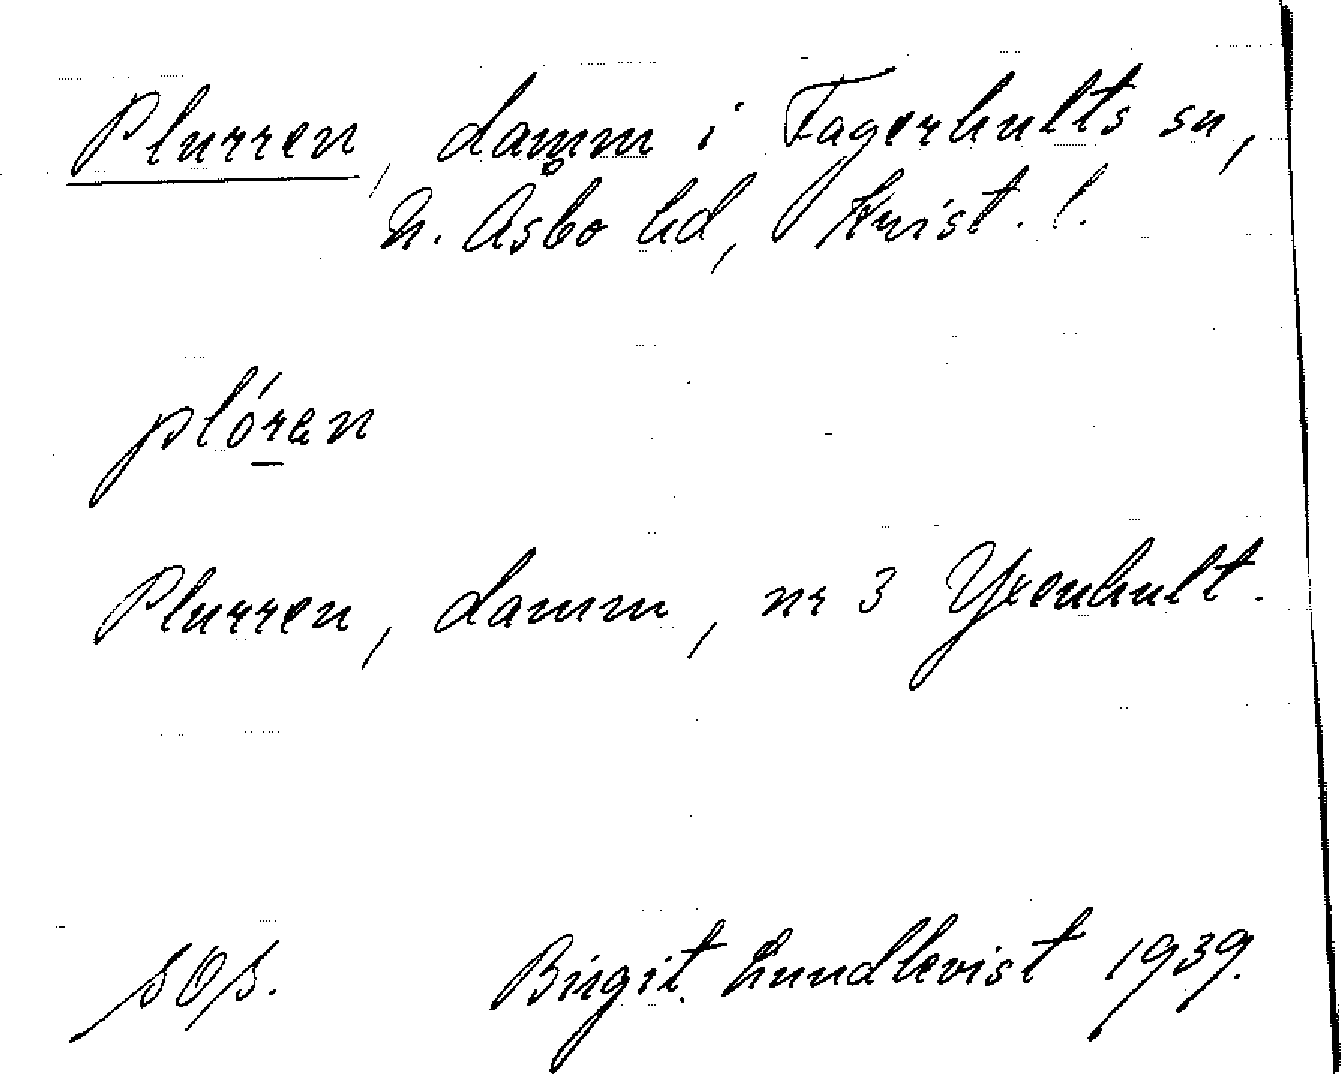 Plurren, damm i Fagerhults sn,
N. Åsbo hd, Krist. l.
plóran
Plurren, damm, nr 3 Yxenhult.
sOs. Birgit Lundkvist 1939.